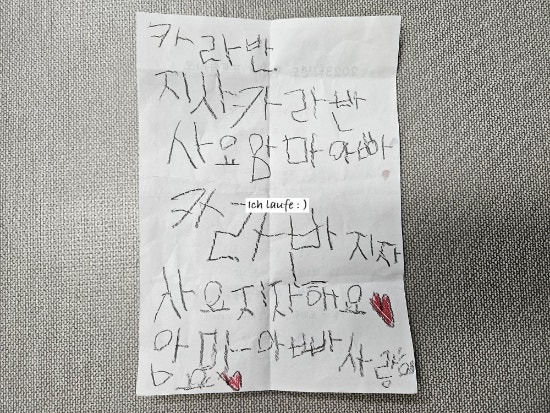 카라반
지사카라반
사요맘마아빠
Ich laufe : )
카라반 지자
사요지잔해요
맘마아빠사랑해
요